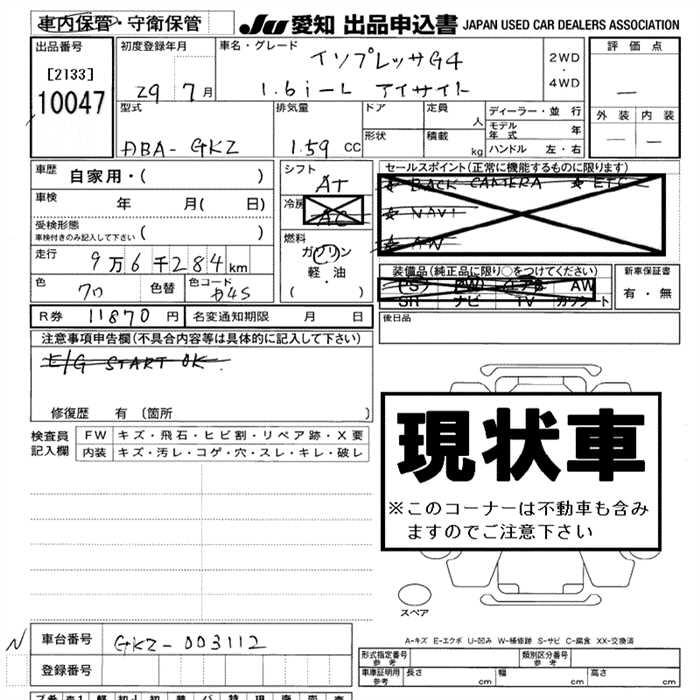 車内保管・守衛保管 JU 愛知 出品申込書 JAPAN USED CAR DEALERS ASSOCIATION
出品番号 初度登録年月 車名・グレード インプレッサG4 2WD・4WD 評価点
[2133] 10047 29 7月 1.6i-L アイサイト —
型式 排気量 ドア 定員 人 ディーラー・並行 外装 内装
モデル年式 年
ABA-GK2 1.59 CC 形状 積載 kg ハンドル 左・右 — —
車歴 自家用・( ) シフト AT セールスポイント(正常に機能するものに限ります)
車検 年 月( 日) 冷房 AC ☆ BACK CAMERA ☆ ETC
受検形態 ( ) ☆ NAVI
車検付きのみ記入して下さい 燃料 ☆ AW
走行 9万6千284km ガソリン 装備品(純正品に限り○をつけてください) 新車保証書
色 クロ 色替 色コード D4S 軽・油 ( ) PS PW エアB AW 有・無
SR ナビ TV カワシート
R券 11870円 名変通知期限 月 日 後日品
注意事項申告欄(不具合内容等は具体的に記入して下さい)
E/G START OK
修復歴 有 (箇所 )
検査員記入欄 FW キズ・飛石・ヒビ割・リペア跡・X要
内装 キズ・汚レ・コゲ・穴・スレ・キレ・破レ
現状車
※このコーナーは不動車も含み
ますのでご注意下さい
スペア
A-キズ E-エクボ U-凹み W-補修跡 S-サビ C-腐食 XX-交換済
N 車台番号 GK2-003112
形式指定番号 参考 類別区分番号 参考
登録番号 車庫証明用 参考 長さ cm 幅 cm 高さ cm